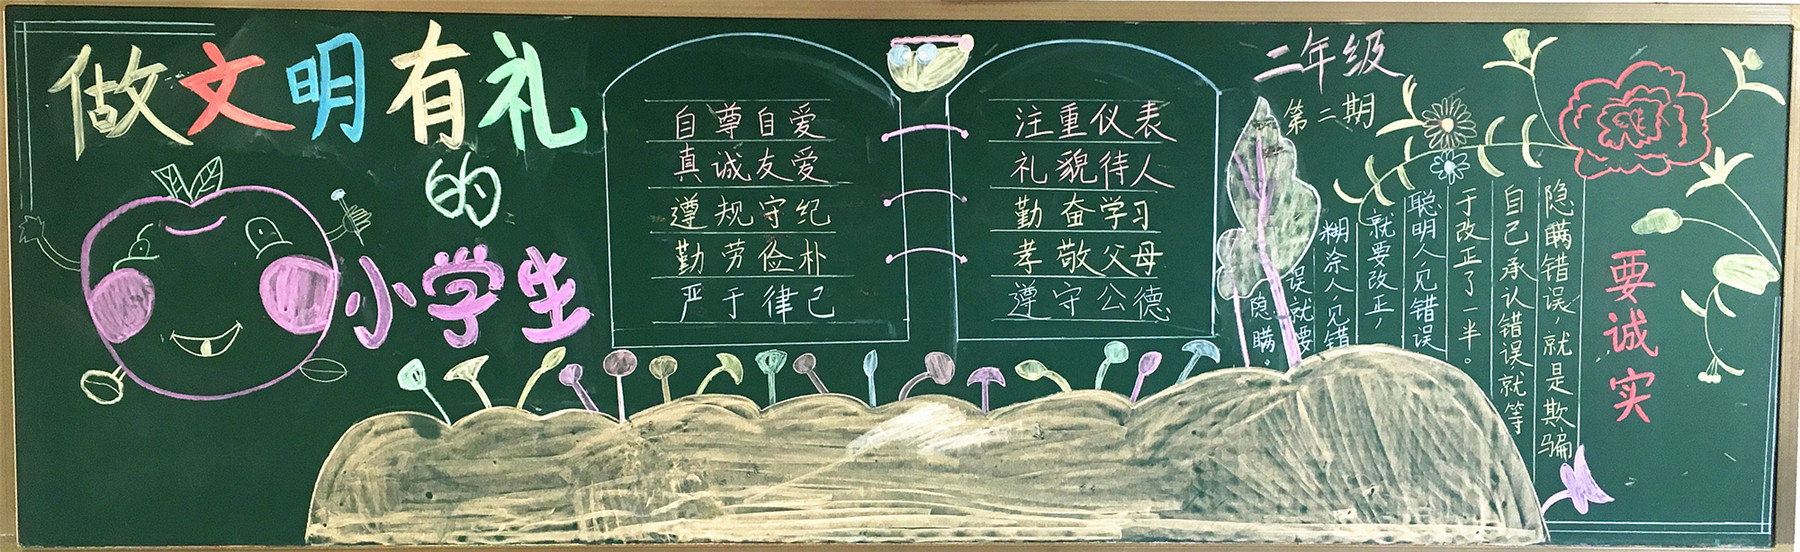 做文明有礼
的
小学生
自尊自爱
真诚友爱
遵规守纪
勤劳俭朴
严于律己
注重仪表
礼貌待人
勤奋学习
孝敬父母
遵守公德
二年级
第二期
要诚实
隐瞒错误 就是欺骗
自己承认错误就等
于改正了一半。
聪明人见错误
就要改正,
糊涂人见错
误就要
隐瞒。